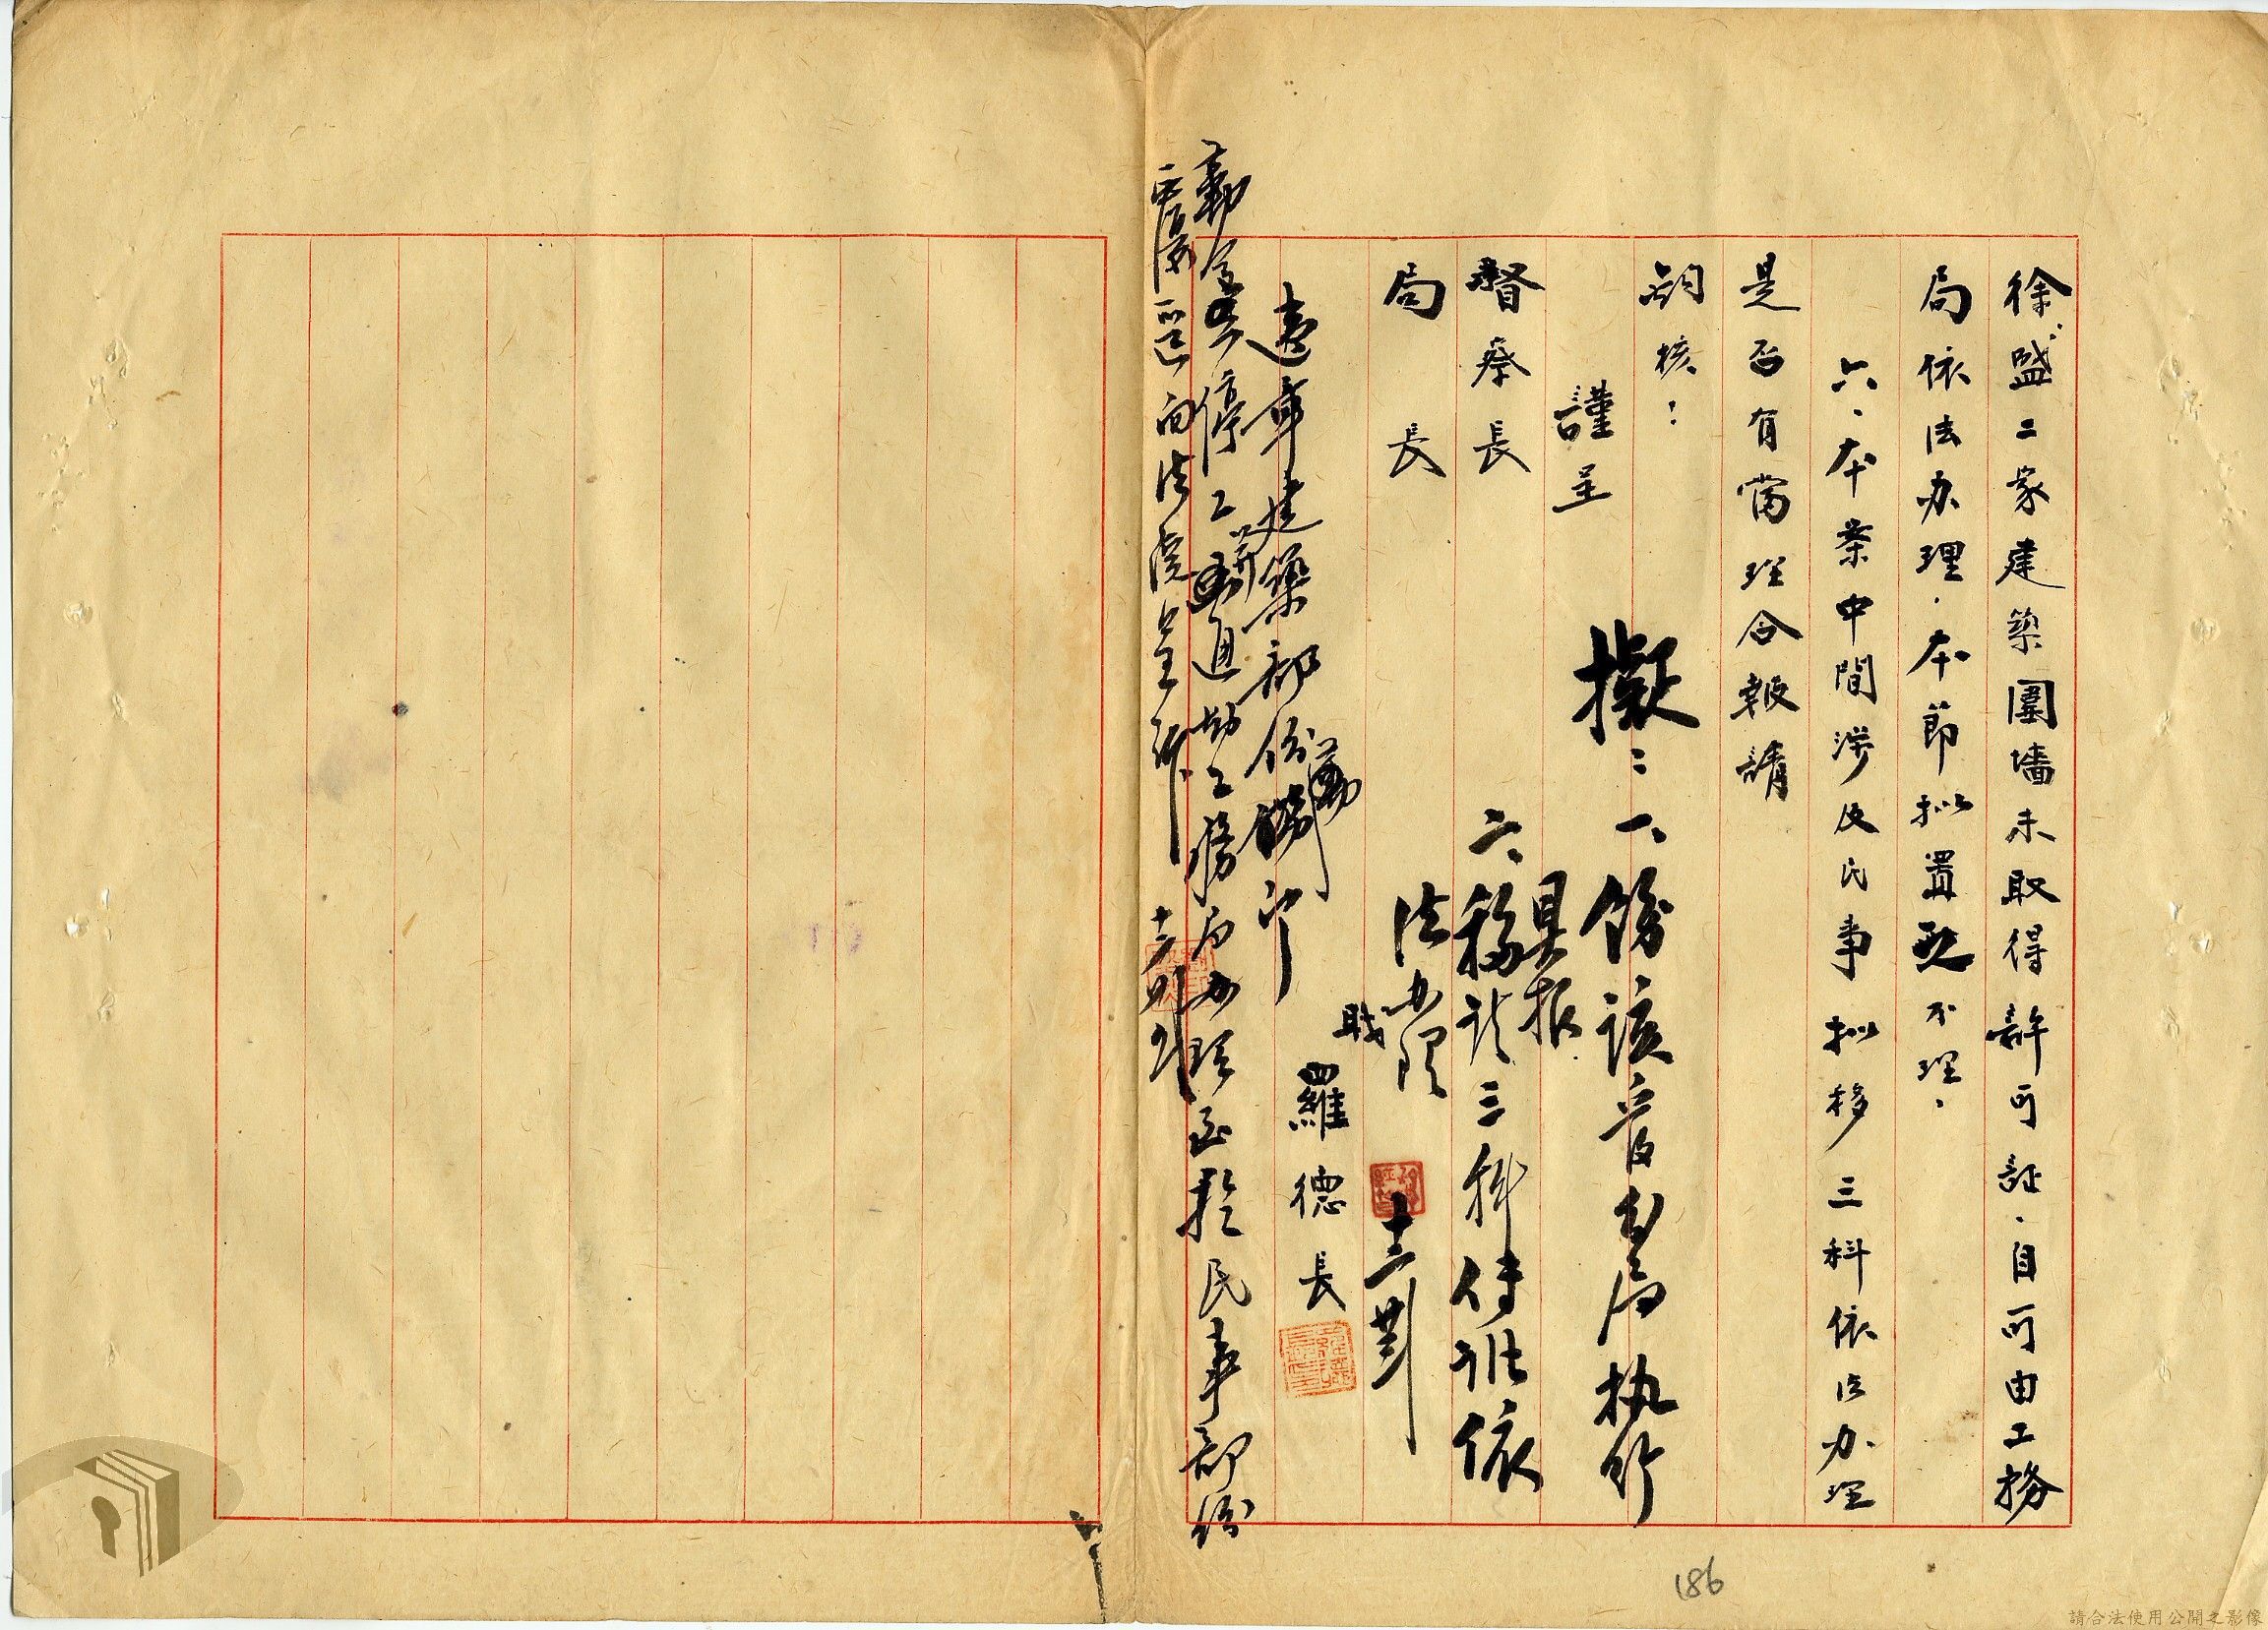 徐盛二家建築圍墻未取得許可証．自可由工務
局依法办理．本節拟置 不理．
六．本案中間涉及民事拟移三科依法办理
是否有當理合報請
鈞核：
謹呈
督察長
局長
職 羅德長
擬：一、飭該管分局执行
具报
二、移請三科傳訊依
法办理
違章建築部份
停工 通知工務局办理至於民事部份
應逕向法院
186
請合法使用公開之影像